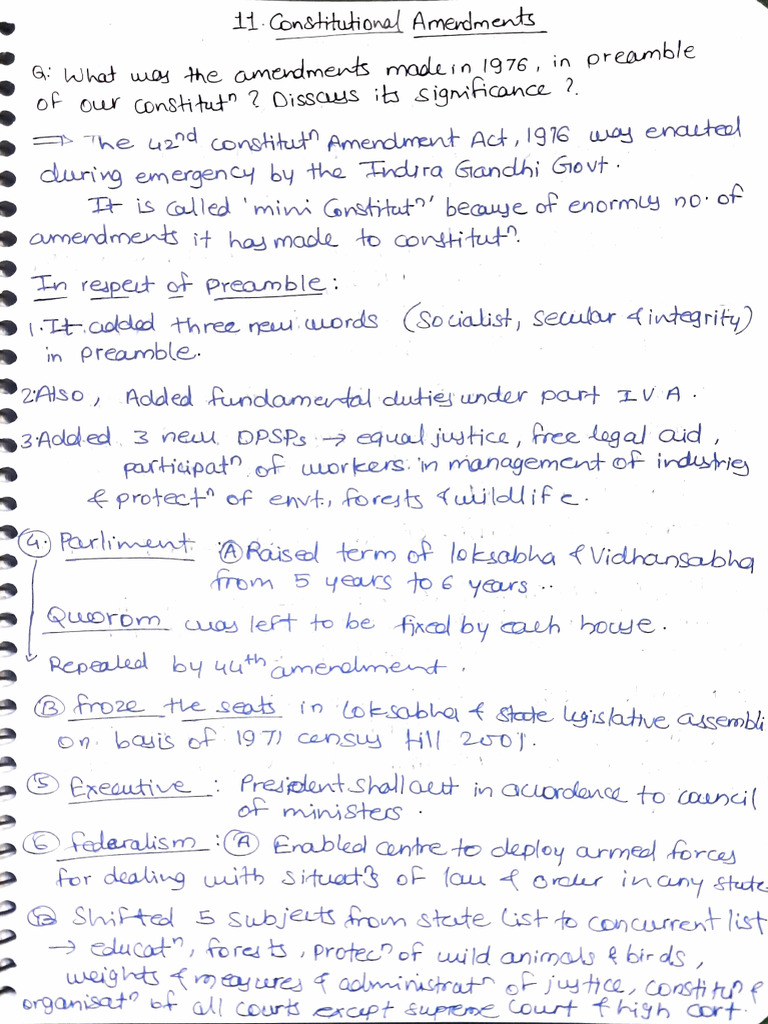 11. Constitutional Amendments
Q: What was the amendments made in 1976, in preamble
of our constitutⁿ? Disscuss its significance?
⇒ The 42nd constitutⁿ Amendment Act, 1976 was enacted
during emergency by the Indira Gandhi Govt.
It is called 'mini Constitutⁿ' because of enormus no. of
amendments it has made to constitutⁿ.
In respect of preamble:
1. It added three new words (Socialist, secular & integrity)
in preamble.
2. Also, Added fundamental duties under part IV A.
3. Added 3 new DPSPs → equal justice, free legal aid,
participatⁿ of workers in management of industries
& protectⁿ of envt., forests & wildlife.
④. Parliment Ⓐ Raised term of loksabha & Vidhansabha
from 5 years to 6 years..
Quorom was left to be fixed by each house.
Repealed by 44th amendment.
Ⓑ froze the seats in loksabha & state legislative assembli
on basis of 1971 census till 2001.
⑤ Executive: President shall act in accordence to council
of ministers.
⑥ federalism: Ⓐ Enabled centre to deploy armed forces
for dealing with situatⁿs of law & order in any state.
Ⓑ Shifted 5 subjects from state list to concurrent list
→ educatⁿ, forests, protecⁿ of wild animals & birds,
weights & measures & administratⁿ of justice, constituⁿ &
organisatⁿ of all courts except supreme court & high cort.